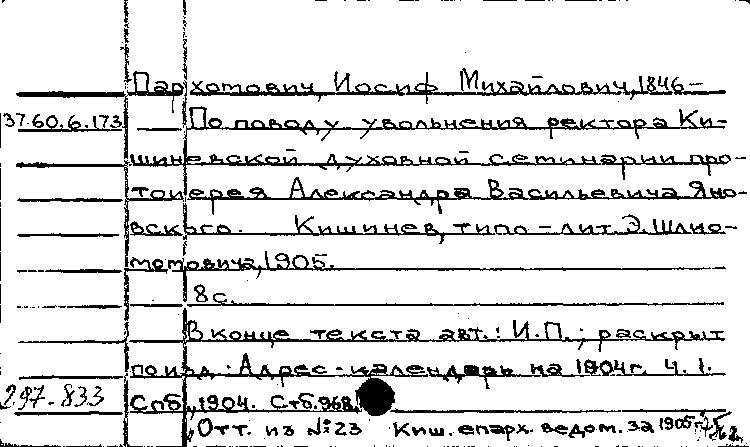 Пархомович, Иосиф Михайлович, 1846-
37.60.6.173 По поводу увольнения ректора Ки-
шиневской духовной семинарии про-
тоиерея Александра Васильевича Яно-
вского. Кишинев, типо-лит. Э. Шлио-
мовича, 1905.
8 с.
В конце текста авт.: И.П.; раскрыт
по изд.: Адрес-календарь на 1904 г. Ч. 1.
297-833 Спб., 1904. Стб. 968.
Отт. из №23 Киш. епарх. ведом. за 1905 г.